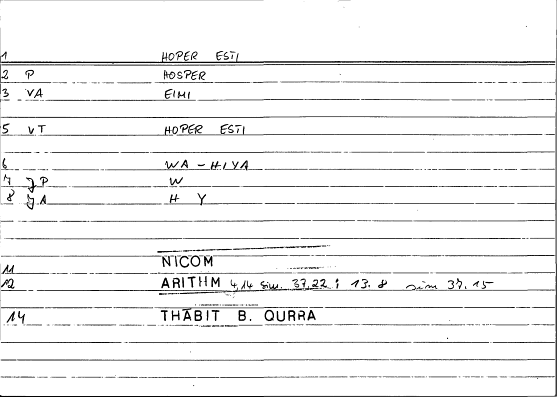 1 HOPER ESTI
2 P HOSPER
3 VA EIMI
5 VT HOPER ESTI
6 WA-HIYA
7 JP W
8 JA H Y
11 NICOM
12 ARITHM 4,14 sim. 37,22; 13.8 sim 37.15
14 THABIT B. QURRA